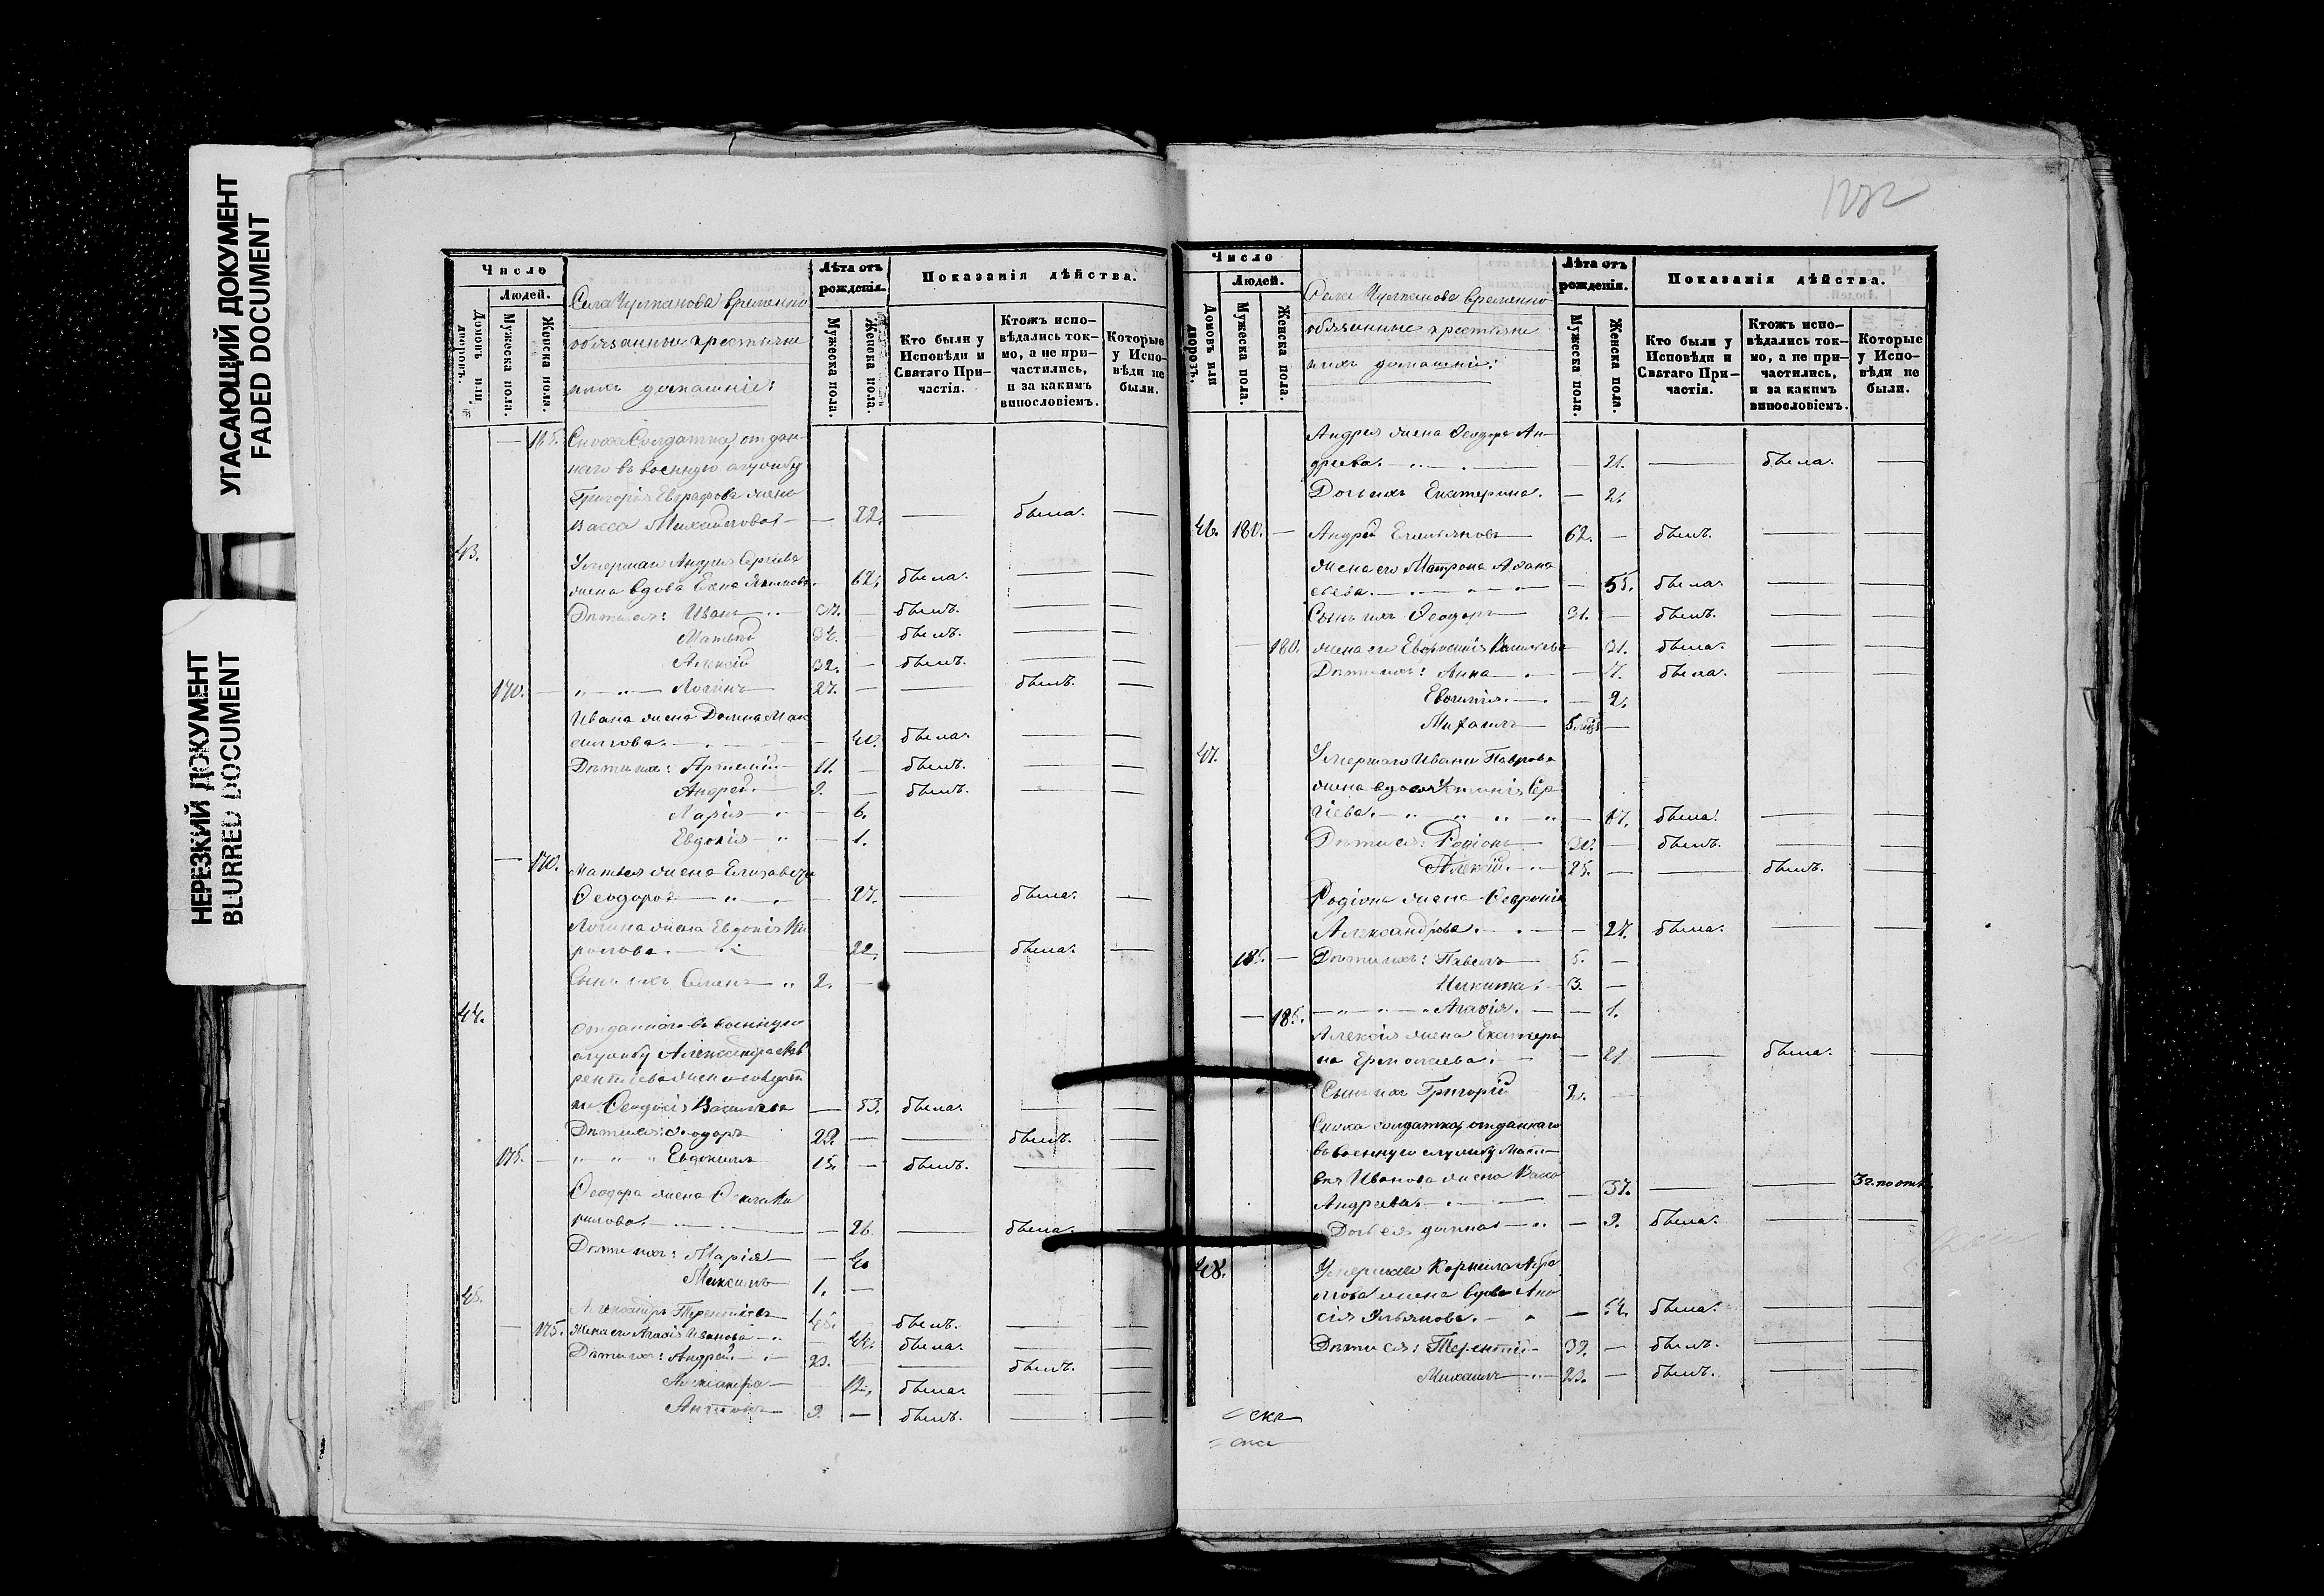 УГАСАЮЩИЙ ДОКУМЕНТ
FADED DOCUMENT
НЕРЕЗКИЙ ДОКУМЕНТ
BLURRED DOCUMENT
Число
Людей.
Домовъ или дворовъ.
Мужеска пола.
Женска пола.
Села Чулпанова временно
обязанные крестьяне
ихъ домашніе:
Лѣта отъ рожденія.
Мужеска пола.
Женска пола.
Показанія дѣйства.
Кто были у Исповѣди и Святаго Причастія.
Ктожъ исповѣдались токмо, а не причастились, и за какимъ винословіемъ.
Которые у Исповѣди не были.
— Сноха Солдатка, отдан-
наго въ военную службу
Григорія Евграфова жена
Васса Михайлова — — 22. — была. —
43. Умершаго Андрея Сергѣева
жена вдова — 62. была. — —
Дѣти ея: Иванъ 37. — былъ. — —
Матвей — былъ. — —
Алексій 32. — былъ. — —
170. — Логинъ 27. — — былъ. —
Ивана жена Домна Мак
симова. — 40. была. — —
Дѣти ихъ: Артемій 11. — былъ. — —
Андрей 9. — былъ. — —
Марія — 6.
Евдокія — 1.
— 170. Матвея жена Елизавета
Ѳеодорова — 27. — была. —
Логина жена Евдокія Ки
рилова. — 22. — была. —
Сынъ ихъ Семенъ 2. —
44. Отданнаго въ военную
службу Александра Тер
рентіева жена солдат
ка Ѳеодосія Васильева — 53. была. — —
Дѣти ея: Ѳеодоръ 29. — — былъ. —
175. — Евдокимъ 15. — былъ. — —
Ѳеодора жена Ки
рилова. — 26. — была. —
Дѣти ихъ: Марія — 4.
Максимъ 1. —
45. Александръ Терентіевъ 45. — былъ. — —
— 175. Жена его Агафія Иванова — 44. была. — —
Дѣти ихъ: Андрей 23. — — былъ. —
Александра — 12. была. — —
Антонъ 9. — былъ. — —
Число
Людей.
Домовъ или дворовъ.
Мужеска пола.
Женска пола.
Села Чулпанова временно
обязанные крестьяне
ихъ домашніе:
Лѣта отъ рожденія.
Мужеска пола.
Женска пола.
Показанія дѣйства.
Кто были у Исповѣди и Святаго Причастія.
Ктожъ исповѣдались токмо, а не причастились, и за какимъ винословіемъ.
Которые у Исповѣди не были.
Андрея жена Ѳеодора Ан-
дреева. — 21. — была. —
Дочь ихъ Екатерина. — 2.
46. 180. — Андрей Емельяновъ 62. — былъ. — —
жена его Матрона Аѳана
сьева. — 55. была. — —
Сынъ ихъ Ѳеодоръ 31. — былъ. — —
— 180. жена его Евфросинія Васильева — 31. была. — —
Дѣти ихъ: Анна — 7. была. — —
— 2.
Михаилъ 5 мѣс —
47. Умершаго Ивана Павлова
жена вдова Ксенія Сер
гіева. — 67. была. — —
Дѣти ея: Родіонъ 30. — былъ. — —
Алексій 25. — — былъ. —
Родіона жена Ѳевронія
Александрова. — 27. была. — —
185. — Дѣти ихъ: Павелъ 5. —
Никита. 3. —
— 185. Агафія. — 1.
Алексія жена Екатери
на Ермолаева. — 21 — была. —
Сынъ ихъ Григорій 2. —
Сноха солдатка, отданнаго
въ военную службу Мат-
вея Иванова жена Васса
Андреева. — 37. — — 3 г. по отл.
Дочь ея Домна — 9. была. — —
48. Умершаго Корнила
жена вдова
сія — 54. была. — —
Дѣти ея: Терентій 32. — былъ. — —
Михаилъ 23. — былъ. — —